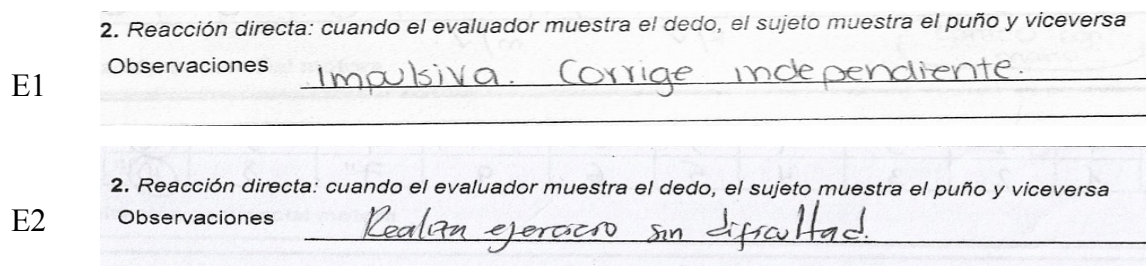 2. Reacción directa: cuando el evaluador muestra el dedo, el sujeto muestra el puño y viceversa
E1 Observaciones Impulsiva. Corrige independiente.
2. Reacción directa: cuando el evaluador muestra el dedo, el sujeto muestra el puño y viceversa
E2 Observaciones Realiza ejercicio sin dificultad.